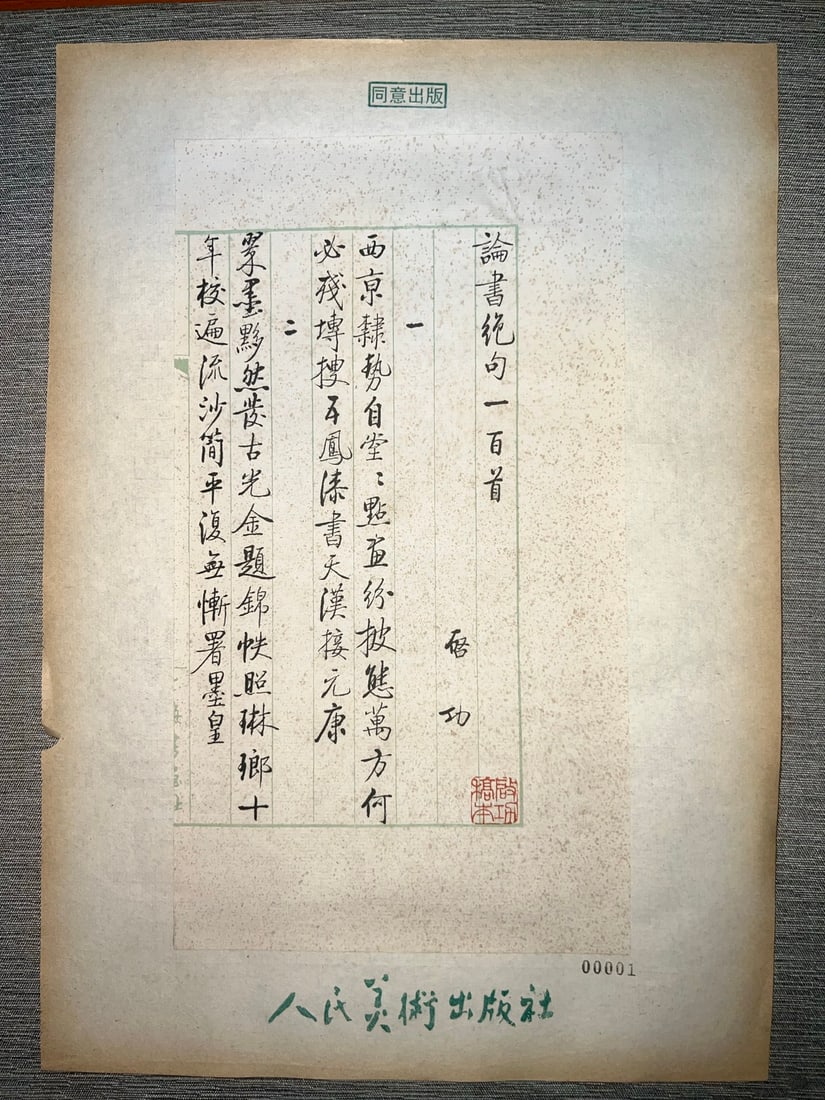 同意出版
論書絕句一百首
啓功
啟功
稿本
一
西京隸勢自堂〻點畫紛披態萬方何
必殘塼搜五鳳漆書天漢接元康
二
翠墨黟然發古光金題錦帙照琳瑯十
年校遍流沙簡平復無慚署墨皇
00001
人民美術出版社